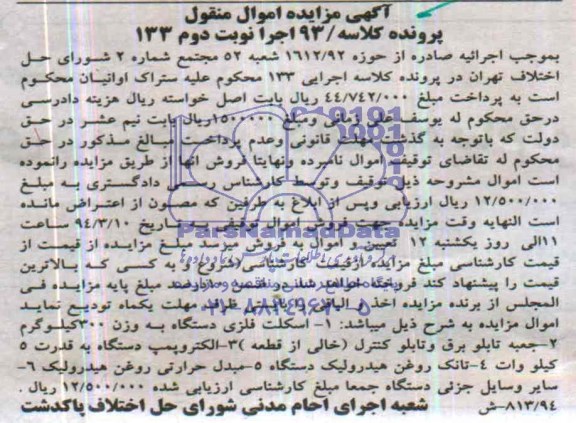 آگهی مزایده اموال منقول
پرونده کلاسه /۹۳ اجرا نوبت دوم ۱۳۳
بموجب اجرائیه صادره از حوزه ۱۶۱۲/۹۲ شعبه ۵۲ مجتمع شماره ۲ شورای حل
اختلاف تهران در پرونده کلاسه اجرایی ۱۳۳ محکوم علیه ستراک اوانیان محکوم
است به پرداخت مبلغ ۴۴/۷۴۲/۰۰۰ ریال بابت اصل خواسته ریال هزینه دادرسی
درحق محکوم له یوسف علی زمانی ومبلغ ۱۵۰۰۰۰۰ ریال بابت نیم عشر در حق
دولت که باتوجه به گذشت مهلت قانونی وعدم پرداخت مبالغ مذکور در حق
محکوم له تقاضای توقیف اموال نامبرده ونهایتا فروش آنها از طریق مزایده رانموده
است اموال مشروحه ذیل توقیف وتوسط کارشناس رسمی دادگستری به مبلغ
۱۲/۵۰۰/۰۰۰ ریال ارزیابی وپس از ابلاغ به طرفین که مصون از اعتراض مانده
است النهایه وقت مزایده جهت فروش اموال توقیفی به تاریخ ۹۴/۳/۱۰ ساعت
۱۱الی روز یکشنبه ۱۲ تعیین و اموال به فروش میرسد مبلغ مزایده از قیمت از
قیمت کارشناسی مبلغ مزایده ازقیمت کارشناسی شروع و به کسی که بالاترین
قیمت را پیشنهاد کند فروخته خواهد شد و ضمن مزایده مبلغ پایه مزایده فی
المجلس از برنده مزایده اخذ و الباقی را بایستی ظرف مهلت یکماه تودیع نماید
اموال مزایده به شرح ذیل میباشد: ۱- اسکلت فلزی دستگاه به وزن ۳۰۰کیلوگرم
۲-جعبه تابلو برق وتابلو کنترل (خالی از قطعه )۳-الکتروپمپ دستگاه به قدرت ۵
کیلو وات ۴-تانک روغن هیدرولیک دستگاه ۵-مبدل حرارتی روغن هیدرولیک ۶-
سایر وسایل جزئی دستگاه جمعا مبلغ کارشناسی ارزیابی شده ۱۲/۵۰۰/۰۰۰ ریال .
۸۱۳/۹۴-ش شعبه اجرای احام مدنی شورای حل اختلاف پاکدشت
ParsNamadData
۰۲۱-۸۸۳۴۹۶۷۰-۵